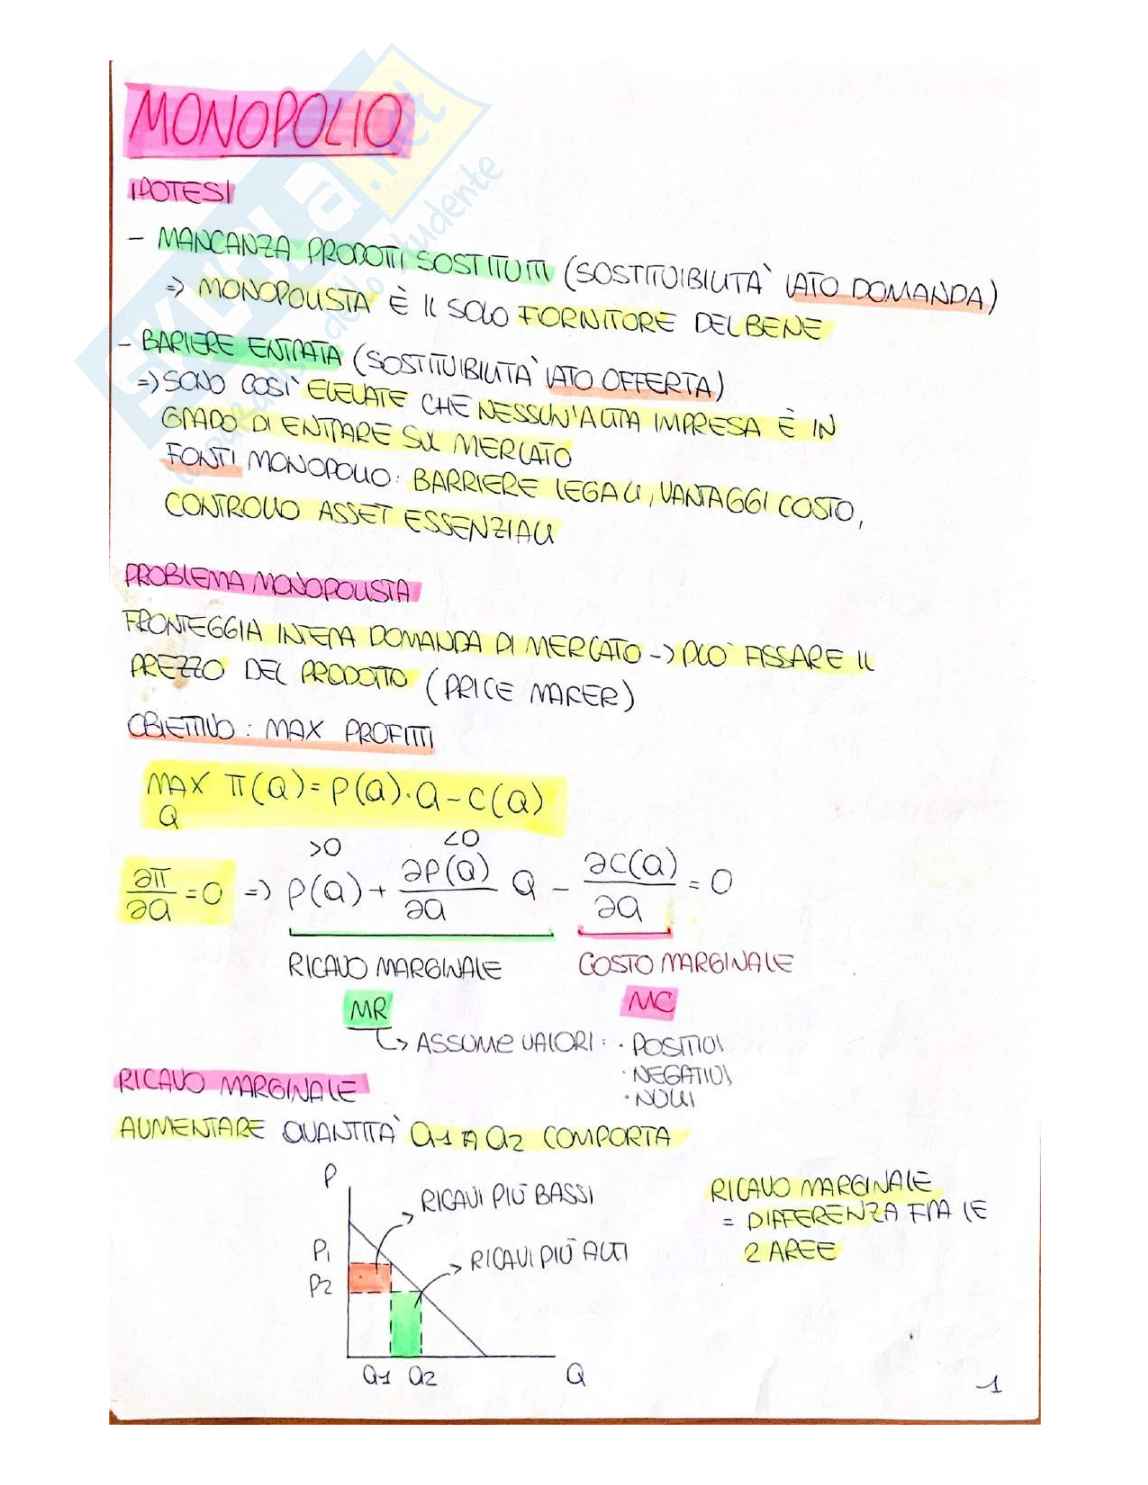 MONOPOLIO
IPOTESI
- MANCANZA PRODOTTI SOSTITUTI (SOSTITUIBILITÀ LATO DOMANDA)
=> MONOPOLISTA È IL SOLO FORNITORE DEL BENE
- BARIERE ENTRATA (SOSTITUIBILITÀ LATO OFFERTA)
=> SONO COSÌ ELEVATE CHE NESSUN'ALTRA IMPRESA È IN
GRADO DI ENTRARE SUL MERCATO
FONTI MONOPOLIO: BARRIERE LEGALI, VANTAGGI COSTO,
CONTROLLO ASSET ESSENZIALI
PROBLEMA MONOPOLISTA
FRONTEGGIA INTERA DOMANDA DI MERCATO -> PUÒ FISSARE IL
PREZZO DEL PRODOTTO (PRICE MAKER)
OBIETTIVO: MAX PROFITTI
MAX π(Q) = P(Q)·Q - C(Q)
Q
>0 <0
∂π/∂Q = 0 => P(Q) + ∂P(Q)/∂Q Q - ∂C(Q)/∂Q = 0
RICAVO MARGINALE COSTO MARGINALE
MR MC
↳ ASSUME VALORI: · POSITIVI
· NEGATIVI
· NULLI
RICAVO MARGINALE
AUMENTARE QUANTITÀ Q1 A Q2 COMPORTA
P
RICAVI PIÙ BASSI
P1
RICAVI PIÙ ALTI
P2
Q1 Q2 Q
RICAVO MARGINALE
= DIFFERENZA FRA LE
2 AREE
1
SKUOLA.net